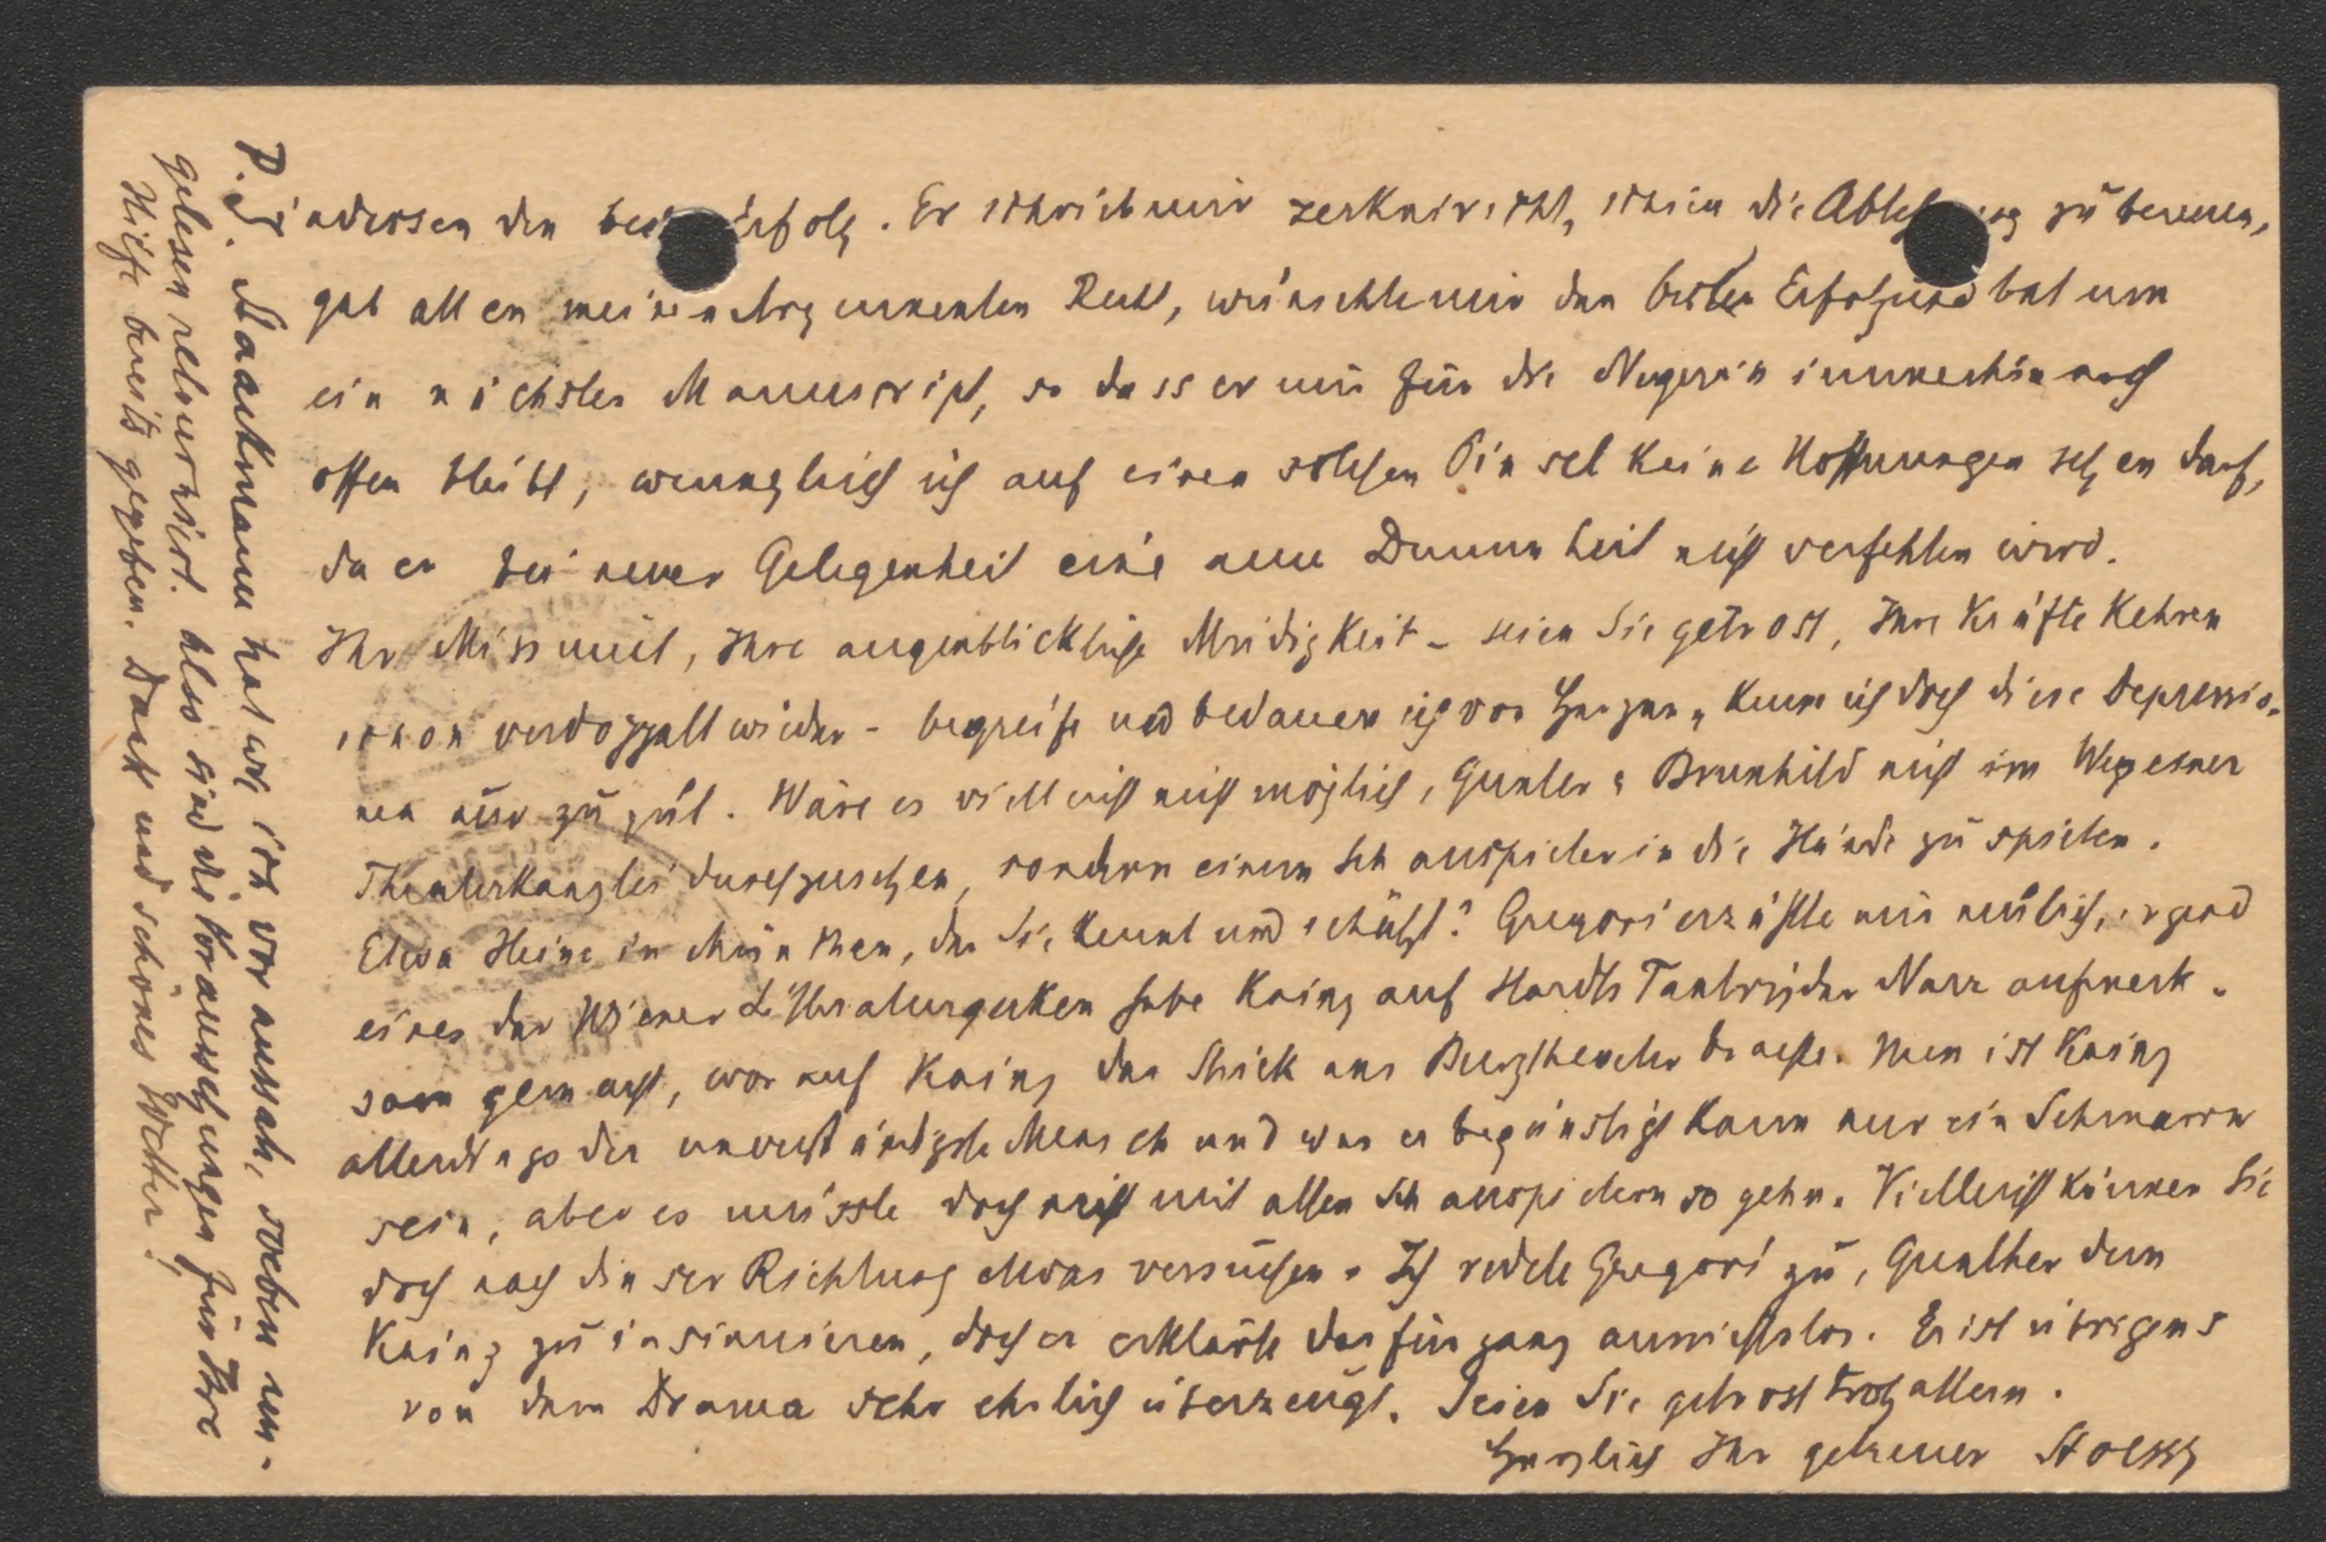 indessen den besten Erfolg. Er schrieb mir zerknirscht, schien die Ablehnung zu bereuen,
gab allen meinen Argumenten Recht, wünschte mir den besten Erfolg und bat um
ein nächstes Manuscript, so dass er mir für die Negerin immerhin noch
offen bleibt, wenngleich ich auf einen solchen Pinsel keine Hoffnungen setzen darf,
da er bei neuer Gelegenheit eine neue Dummheit nicht verfehlen wird.
Ihr Missmut, Ihre augenblickliche Müdigkeit - seien Sie getrost, Ihre Kräfte kehren
schon verdoppelt wieder - begreife und bedauere ich von Herzen, kenn ich doch diese Depressio-
nen nur zu gut. Wäre es vielleicht nicht möglich, Gunter u Brunhild nicht im Wege einer
Theaterkanzlei durchzusetzen, sondern einem Schauspieler in die Hände zu spielen.
Etwa Heine in München, der Sie kennt und schätzt? Gregori erzählte mir neulich, irgend
eines der Wiener Litteraturgecken habe Kainz auf Hardts Tantris der Narr aufmerk-
sam gemacht, worauf Kainz das Stück ans Burgtheater brachte. Nun ist Kainz
allerdings der unverständigste Mensch und was er begünstigt kann nur ein Schmarrn
sein, aber es müsste doch nicht mit allen Schauspielern so gehn. Vielleicht können Sie
doch nach dieser Richtung etwas versuchen. Ich redete Gregori zu, Gunther dem
Kainz zu insinuieren, doch er erklärte das für ganz aussichtslos. Er ist übrigens
von dem Drama sehr ehrlich überzeugt. Seien Sie getrost trotz allem.
Herzlich Ihr getreuer Stoessl
P.S. Staackmann hat wie ich voraussah, soeben un-
gelesen retourniert. Also sind die Voraussetzungen für Ihre
Hilfe bereits gegeben. Dank und schönes Wetter!